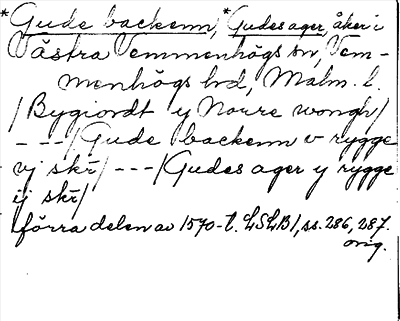 *Gude backenn, *Gudes ager, åker i
Västra Vemmenhögs sn, Vem-
menhögs hd, Malm. l.
/Bygiordt y Norre wongh/
---/Gude backenn v rygge
vj skr/---/Gudes ager y rygge
ij skr/
förra delen av 1570-t. LSLB1, ss. 286, 287.
orig.